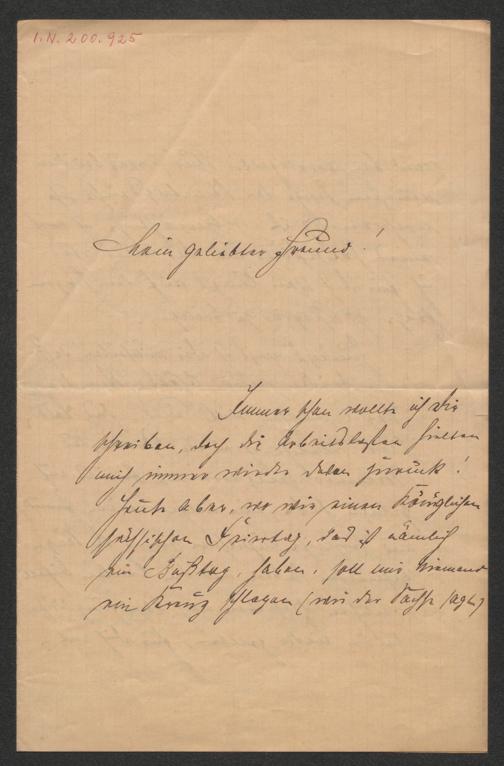 I.N. 200.925
Mein geliebter Freund!
Immer schon wollte ich Dir
schreiben, doch die Arbeitslasten hielten
mich immer wieder davon zurück!
Heute aber, wo wir einen Königlichen
sächsischen Feiertag, das ist nämlich
ein Bußtag, haben, soll mir niemand
ein Kreuz schlagen (wie der Sachse sagt)